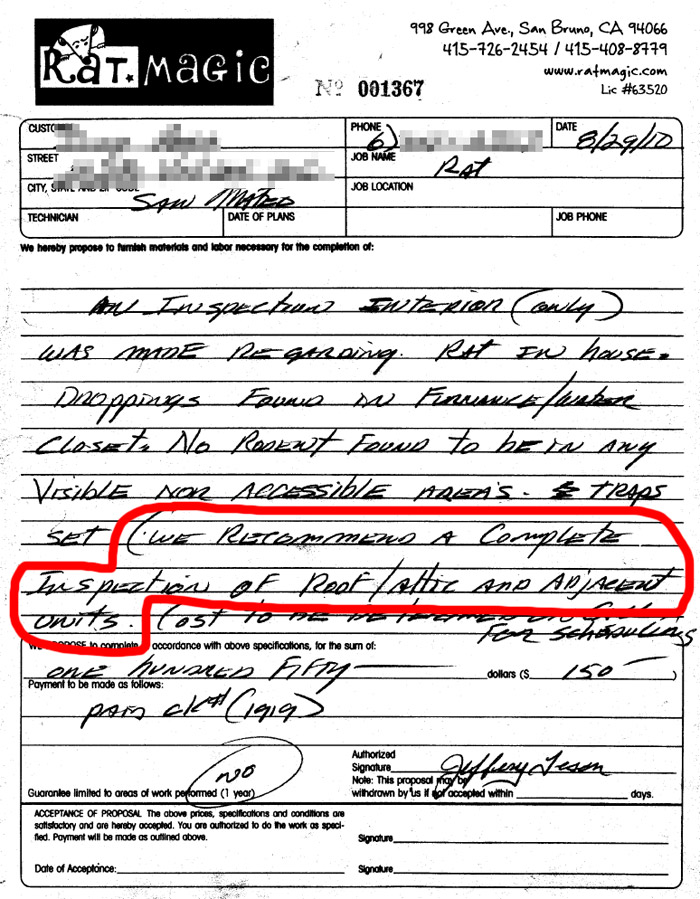 RAT MAGIC
998 Green Ave., San Bruno, CA 94066
415-726-2454 / 415-408-8779
www.ratmagic.com
Lic #63520
Nº 001367
PHONE 6)
DATE 8/29/10
STREET
JOB NAME Rat
CITY, STATE AND ZIP CODE San Mateo
JOB LOCATION
TECHNICIAN
DATE OF PLANS
JOB PHONE
We hereby propose to furnish materials and labor necessary for the completion of:
AN INSPECTION INTERIOR (only)
WAS MADE REGARDING. RAT IN house.
DROPPINGS FOUND IN FURNANCE/water
CLOSET. NO RODENT FOUND to be IN ANY
VISIBLE NOR ACCESSIBLE AREA'S. TRAPS
SET (WE RECOMMEND A COMPLETE
INSPECTION OF ROOF/ATTIC AND ADJACENT
UNITS. Cost to be determined on
FOR SCHEDULING
PROPOSE to complete accordance with above specifications, for the sum of:
ONE HUNDRED FIFTY dollars ($ 150 )
Payment to be made as follows:
PAID CK# (1919)
NO
Guarantee limited to areas of work performed (1 year)
Authorized
Signature Jeffery
Note: This proposal may be
withdrawn by us if not accepted within days.
ACCEPTANCE OF PROPOSAL The above prices, specifications and conditions are
satisfactory and are hereby accepted. You are authorized to do the work as speci-
fied. Payment will be made as outlined above.
Signature
Date of Acceptance:
Signature